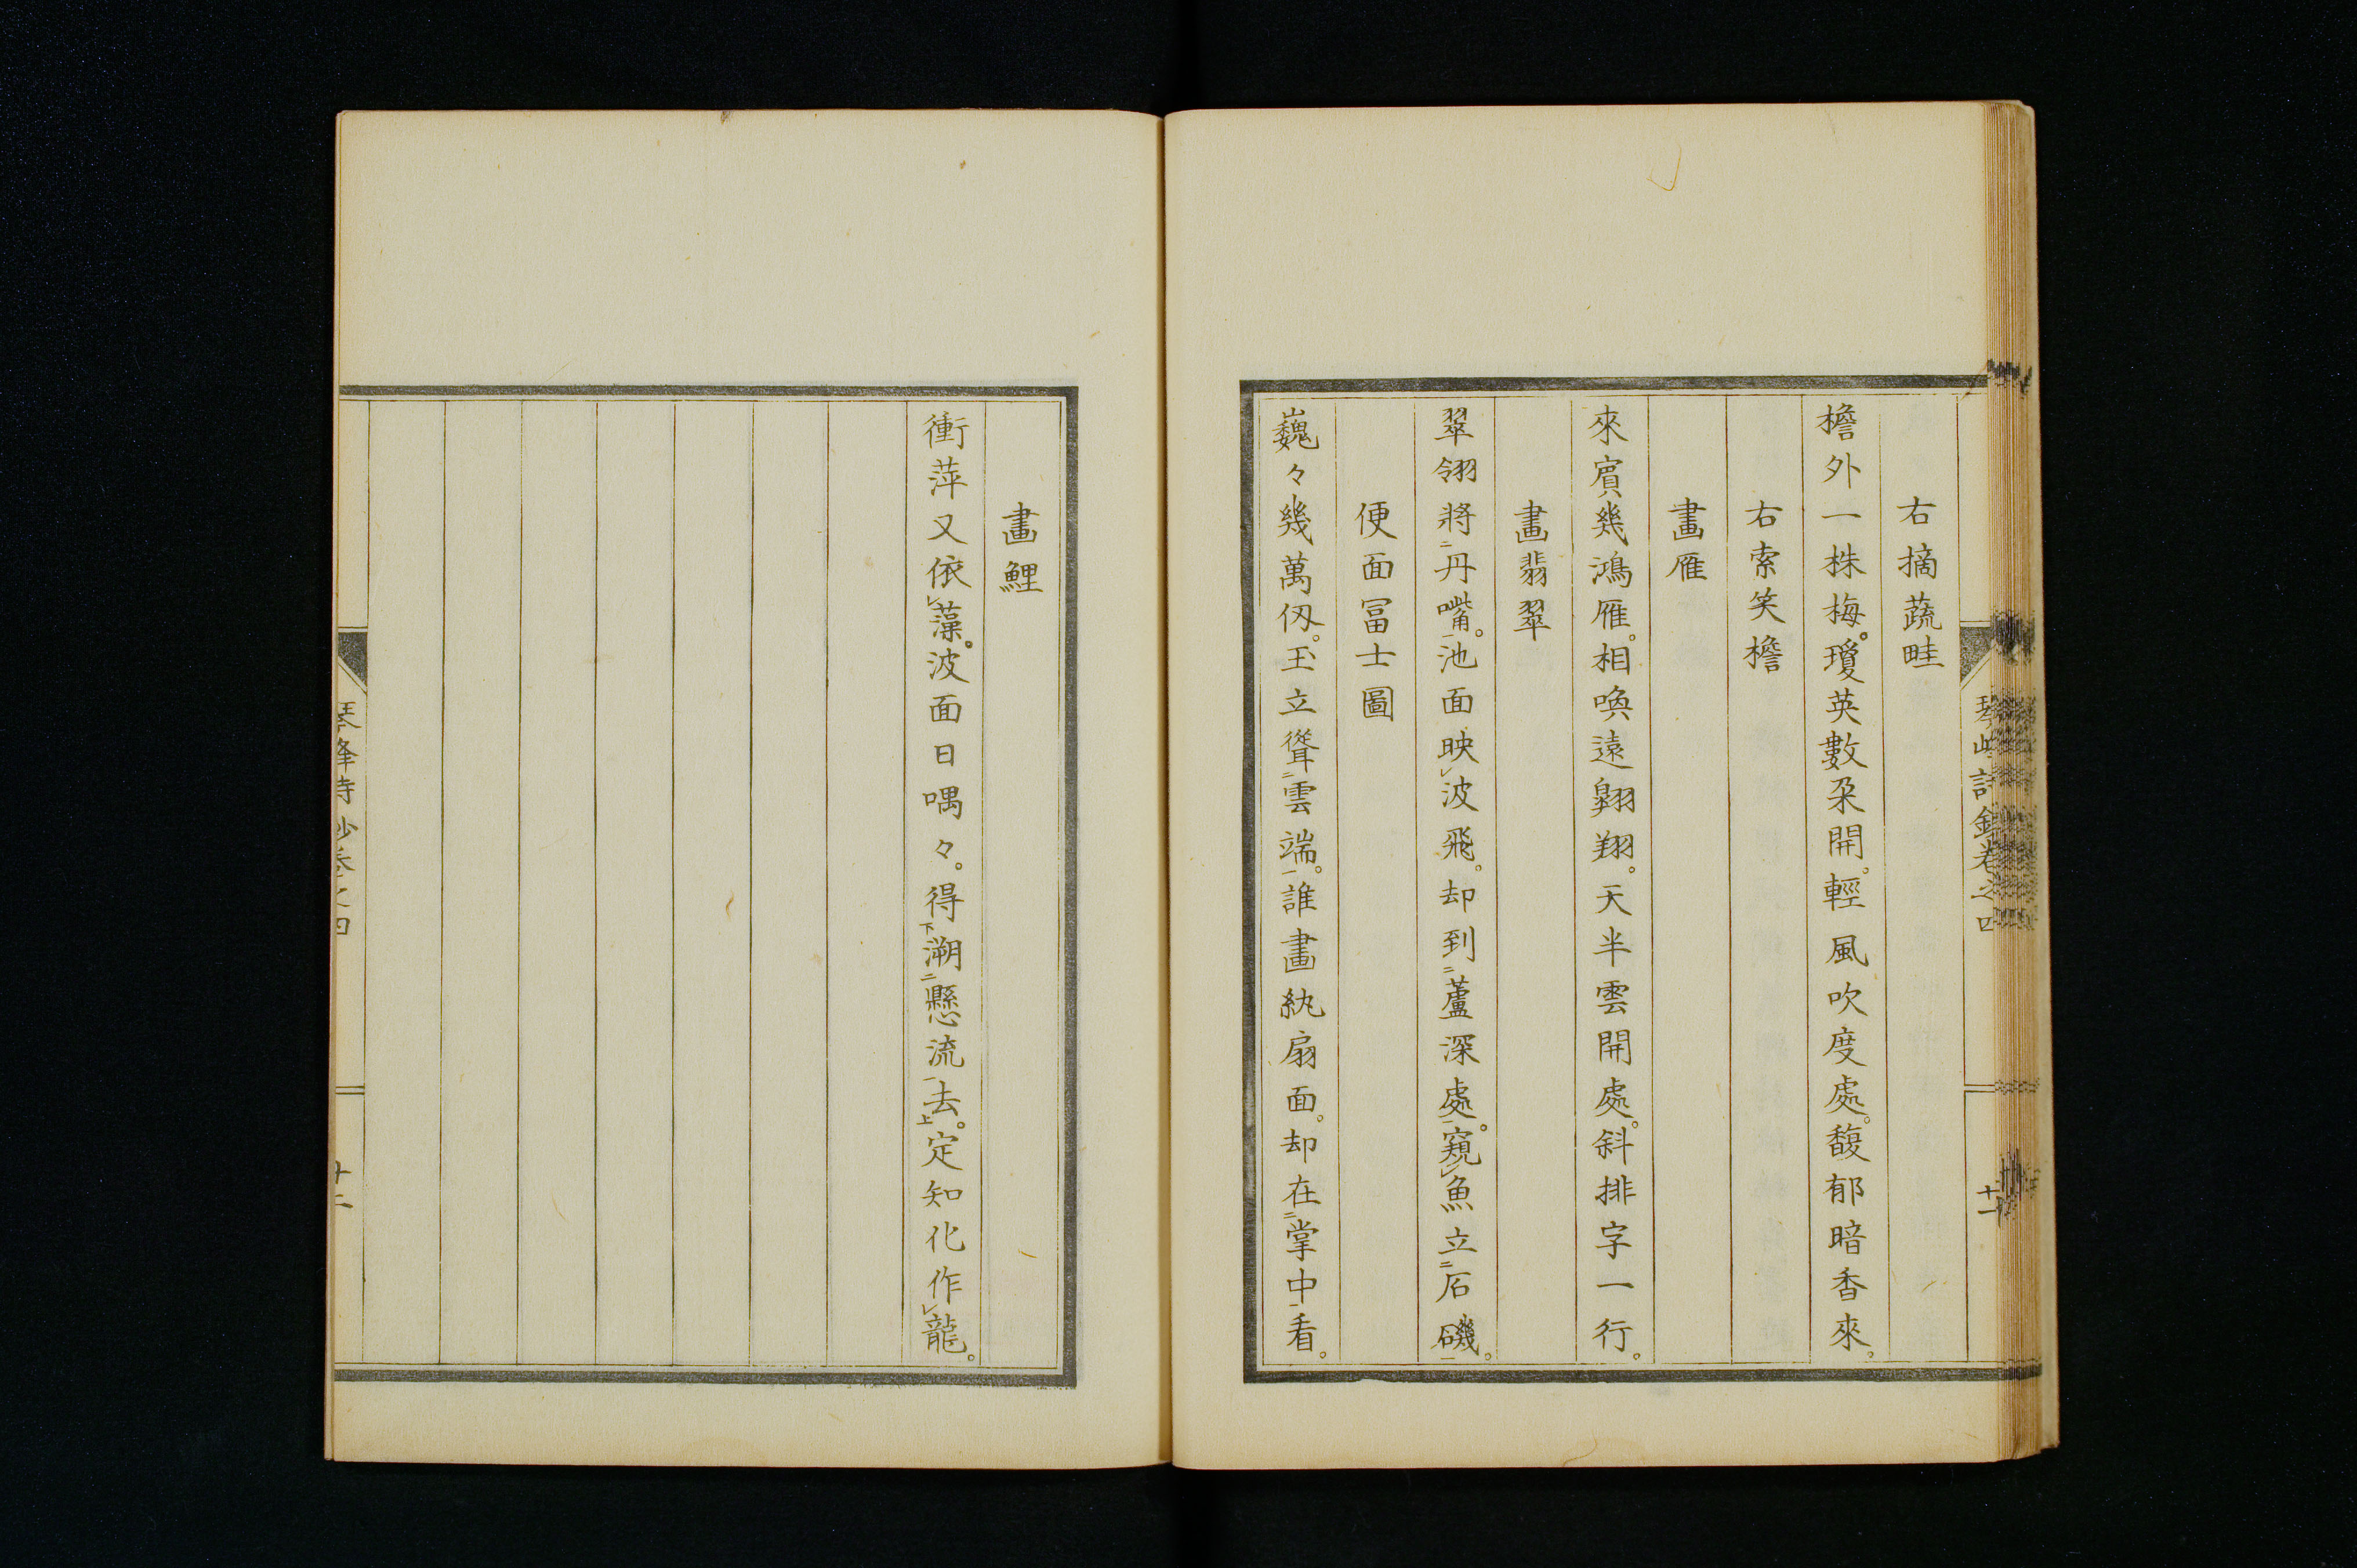 右摘蔬畦
檐外一株梅。瓊英數朶開。輕風吹度處。馥郁暗香來。
右索笑檐
畫雁
來賓幾鴻雁。相喚遠翺翔。天半雲開處。斜排字一行。
畫翡翠
翠翎將㆓丹嘴㆒。池面映㆑波飛。却到㆓蘆深處㆒。窺㆑魚立㆓石磯㆒。
便面冨士圖
巍々幾萬仭。玉立聳㆓雲端㆒。誰畫紈扇面。却在㆓掌中㆒看。
十一
畫鯉
衝萍又依㆑藻。波面日喁々。得㆘溯㆓懸流㆒去㆖。定知化作㆑龍。
琴峰詩鈔卷之四
十二